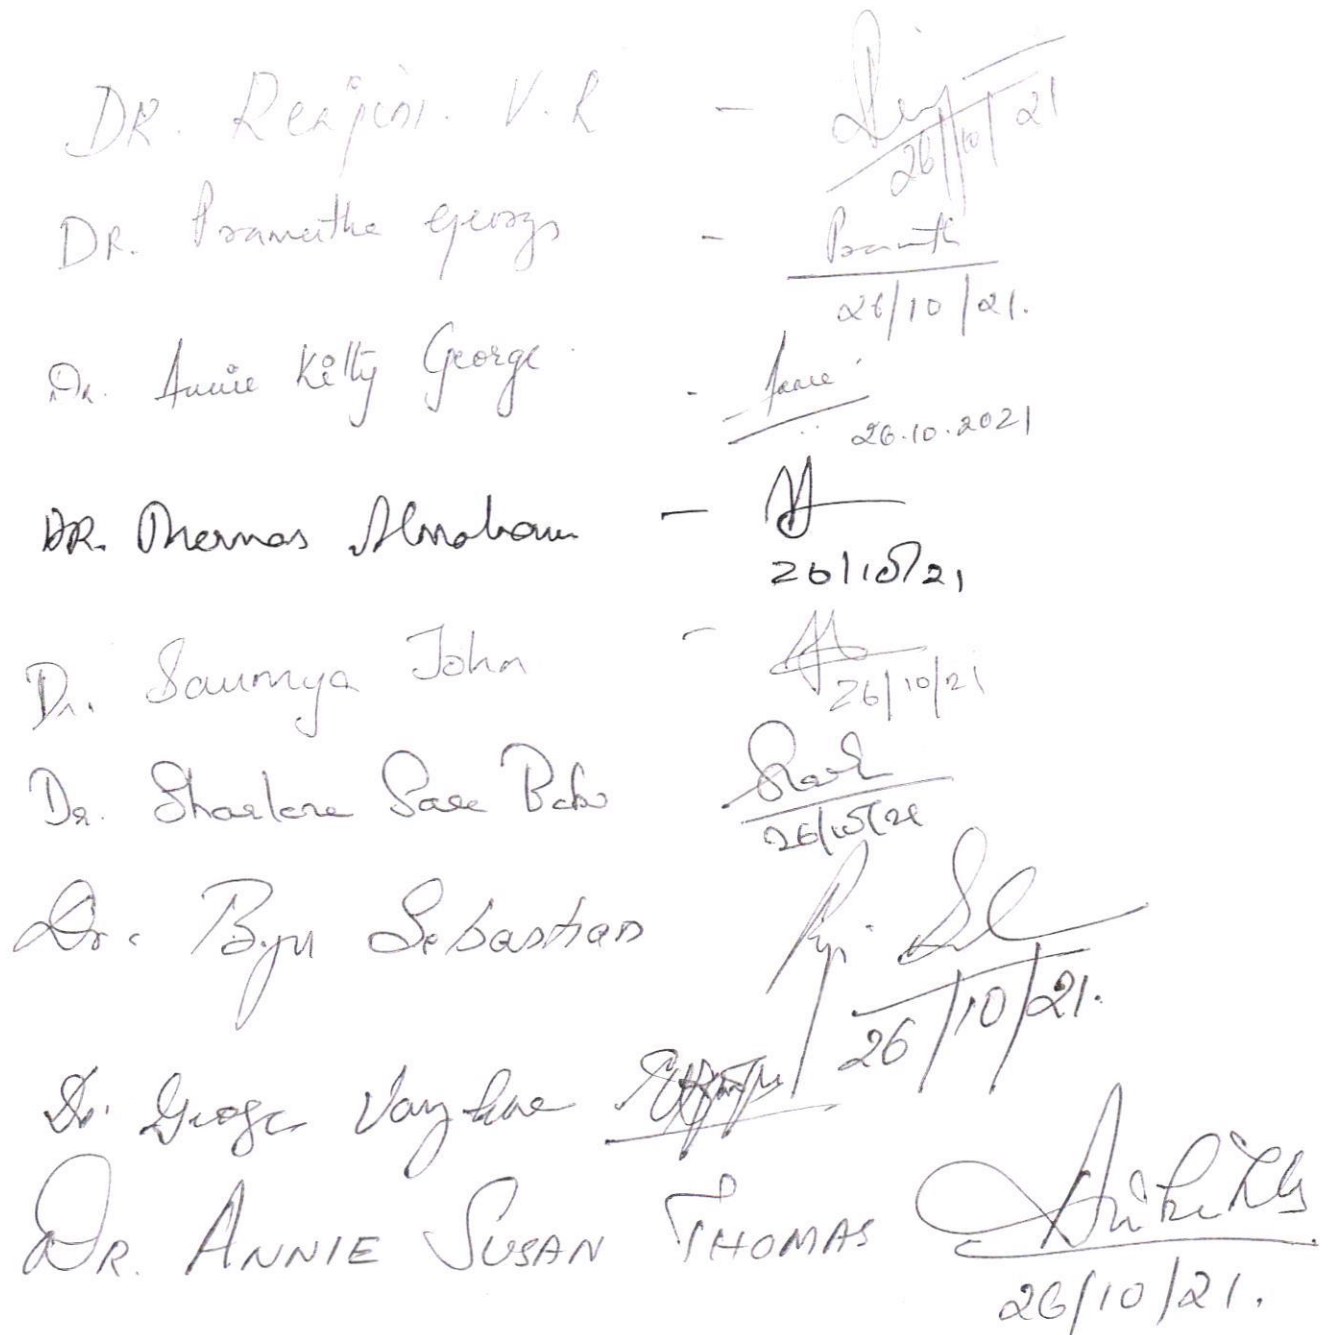 DR. Renjini. V.R -
26/10/21
DR. Prameetha George -
26/10/21.
Dr. Annie Kitty George - Annie
26.10.2021
DR. Thomas Abraham -
26/10/21
Dr. Saumya John -
26/10/21
Dr. Sharlene Sara Babu
26/10/21
Dr. Byju Sebastian
26/10/21.
Dr. George Varghese
DR. ANNIE SUSAN THOMAS
26/10/21.